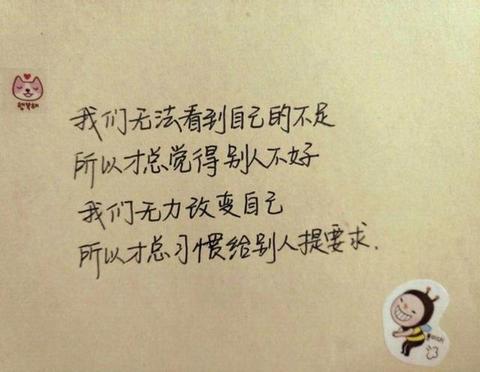 我们无法看到自己的不足
所以才总觉得别人不好
我们无力改变自己
所以才总习惯给别人提要求.